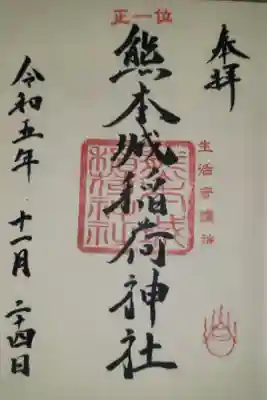 正一位
奉拝
生活守護神
熊本城稲荷神社
令和五年 十一月 二十四日